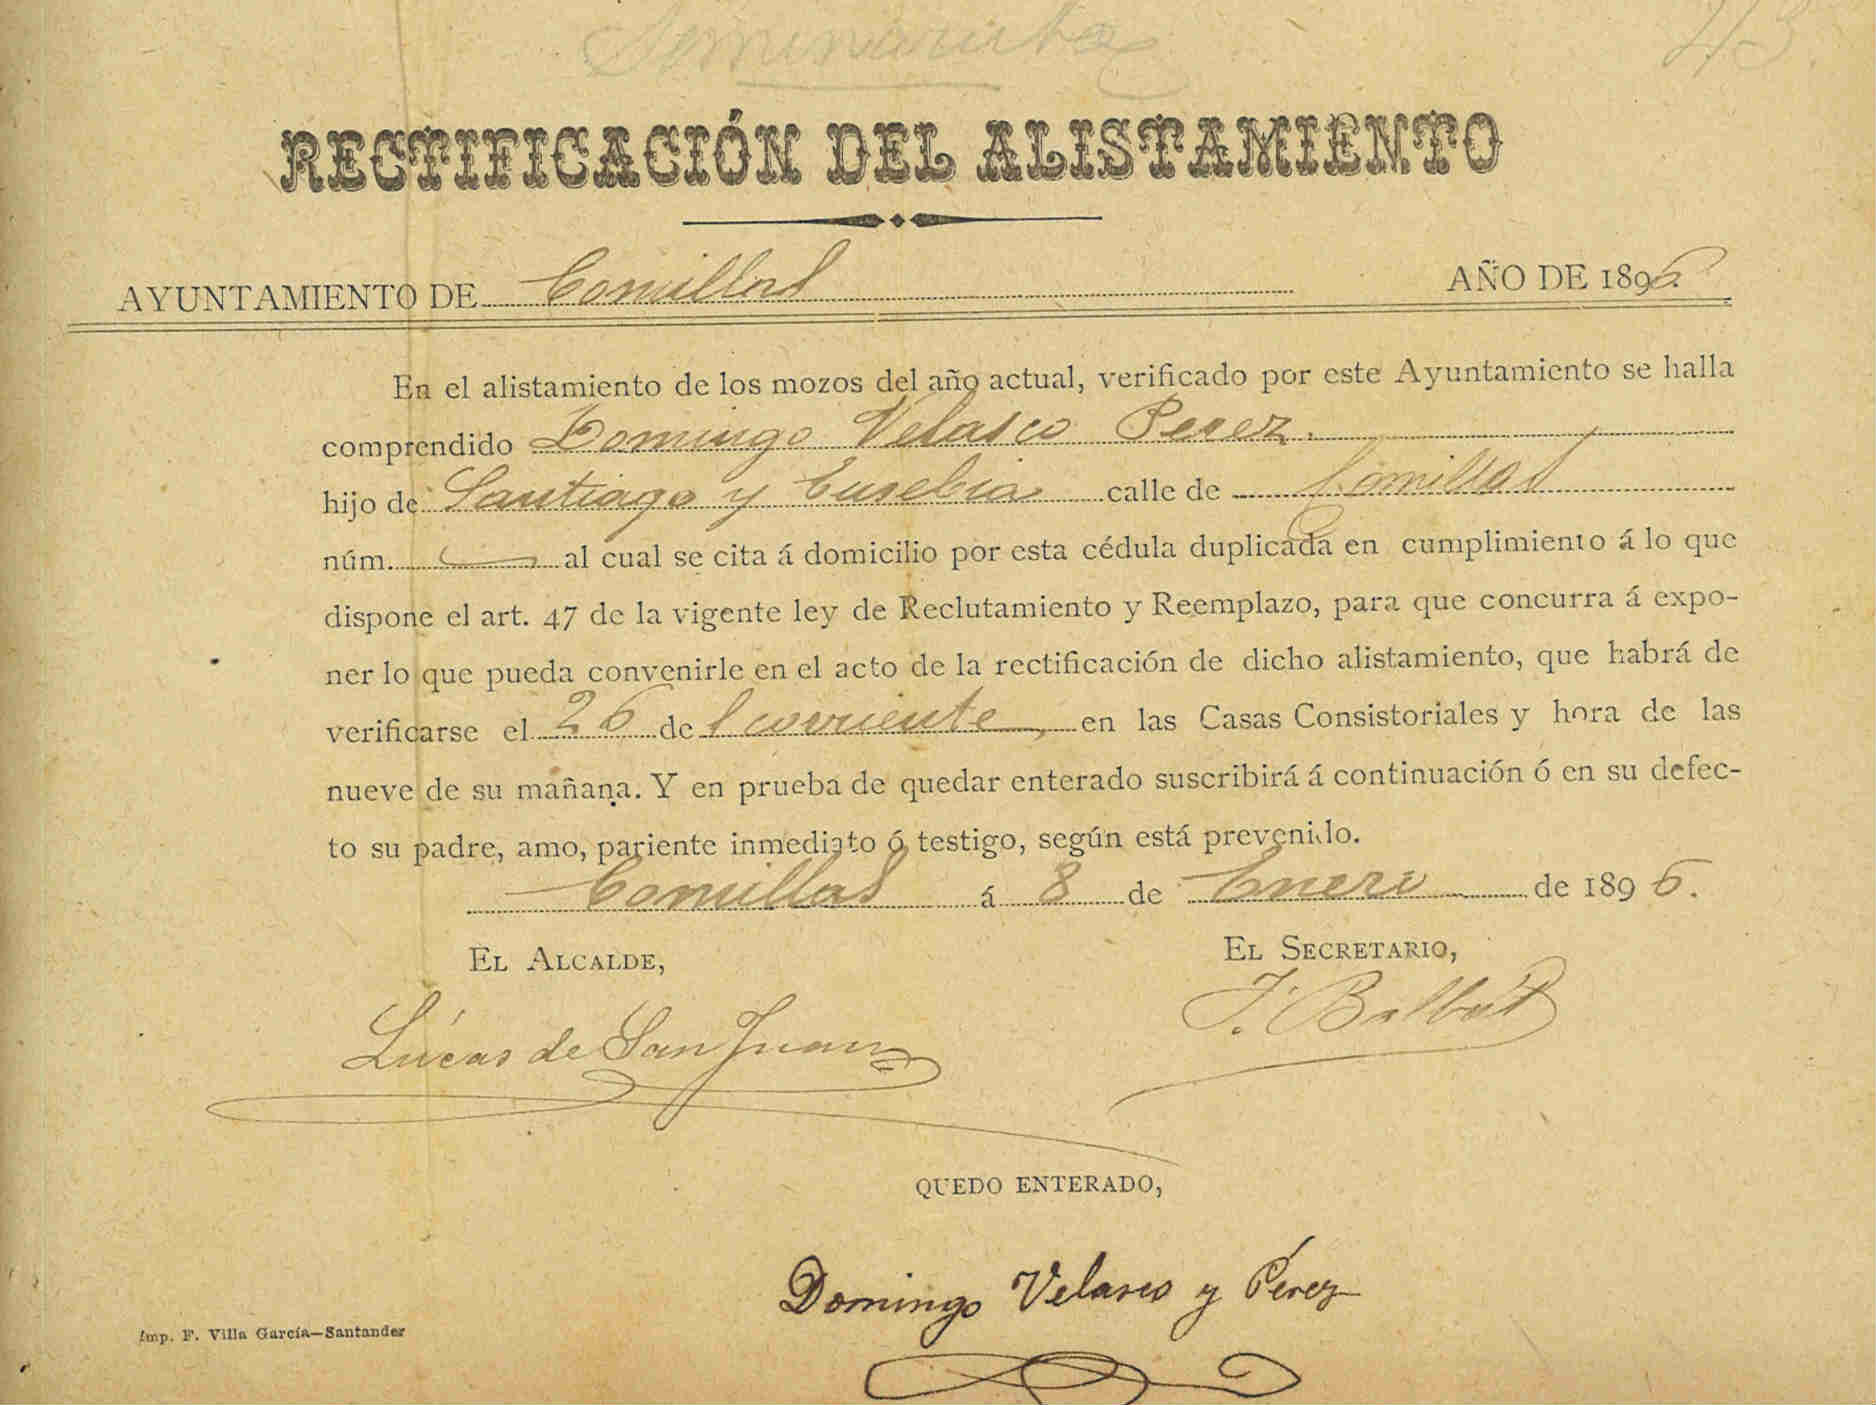 Seminarista
43
RECTIFICACIÓN DEL ALISTAMIENTO
AYUNTAMIENTO DE Comillas AÑO DE 1896.
En el alistamiento de los mozos del año actual, verificado por este Ayuntamiento se halla
comprendido Domingo Velasco Perez.
hijo de Santiago y Eusebia calle de Comillas
núm. al cual se cita á domicilio por esta cédula duplicada en cumplimiento á lo que
dispone el art. 47 de la vigente ley de Reclutamiento y Reemplazo, para que concurra á expo-
ner lo que pueda convenirle en el acto de la rectificación de dicho alistamiento, que habrá de
verificarse el 26 de l corriente, en las Casas Consistoriales y hora de las
nueve de su mañana. Y en prueba de quedar enterado suscribirá á continuación ó en su defec-
to su padre, amo, pariente inmediato ó testigo, según está prevenido.
Comillas á 8 de Enero de 1896.
EL ALCALDE, EL SECRETARIO,
Lúcas de San Juan
QUEDO ENTERADO,
Domingo Velasco y Pérez
Imp. F. Villa García—Santander